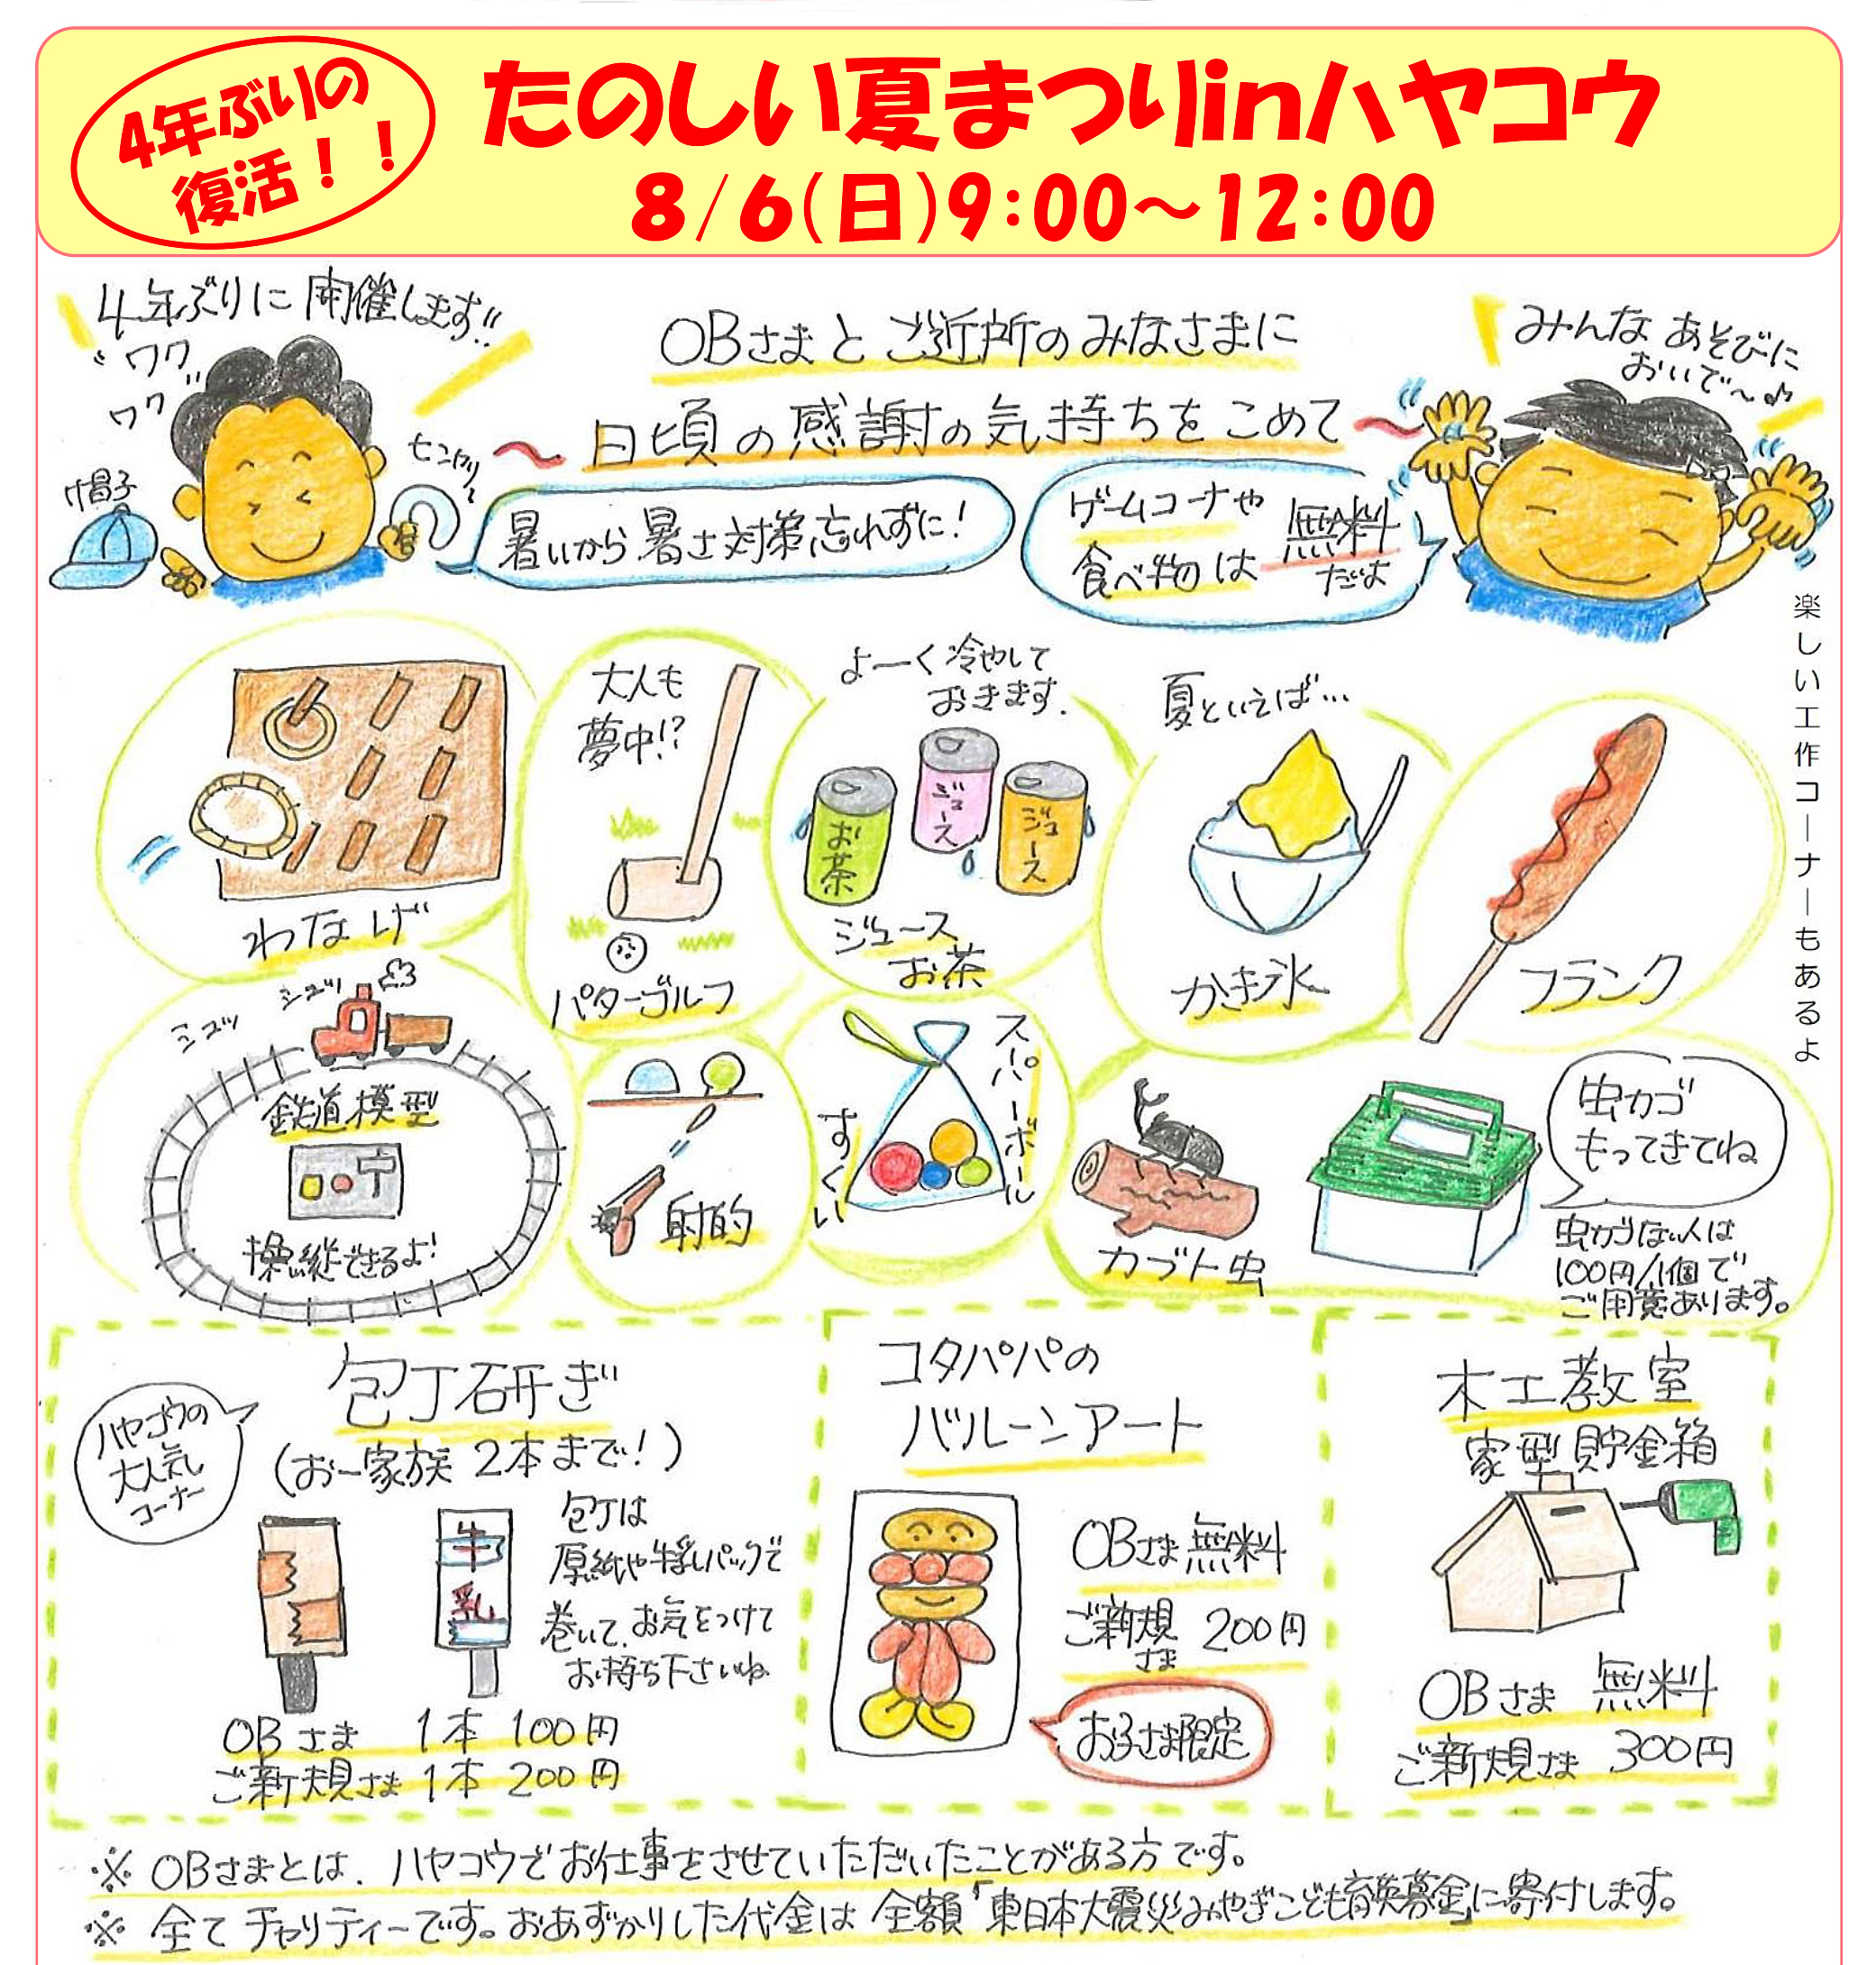 4年ぶりの
復活！！
たのしい夏まつりinハヤコウ
8/6(日)9:00～12:00
4年ぶりに開催します!!
ワク
ワク
OBさまとご近所のみなさまに
～日頃の感謝の気持ちをこめて～
みんなあそびに
おいで～♪
帽子
センヤリ
暑いから暑さ対策忘れずに!
ゲームコーナや
食べ物は 無料
だよ
楽しい工作コーナーもあるよ
わなげ
大人も
夢中!?
パターゴルフ
よーく冷やして
おきます.
お茶
ジュース
ジュース
ジュース
お茶
夏といえば…
かき氷
フランク
シュッ
シュッ
鉄道模型
操縦できるよ!
射的
スーパーボール
すくい
カブト虫
虫カゴ
もってきてね
虫カゴない人は
100円/1個で
ご用意あります。
ハヤコウの
大人気
コーナー
包丁研ぎ
(お一家族 2本まで!)
牛乳
包丁は
厚紙や牛乳パックで
巻いて、お気をつけて
お持ち下さいね
OBさま 1本 100円
ご新規さま 1本 200円
コタパパの
バルーンアート
OBさま 無料
ご新規さま 200円
お子さま限定
木工教室
家型貯金箱
OBさま 無料
ご新規さま 300円
※ OBさまとは、ハヤコウでお仕事をさせていただいたことがある方です。
※ 全てチャリティーです。おあずかりした代金は全額「東日本大震災みやぎこども育英募金」に寄付します。